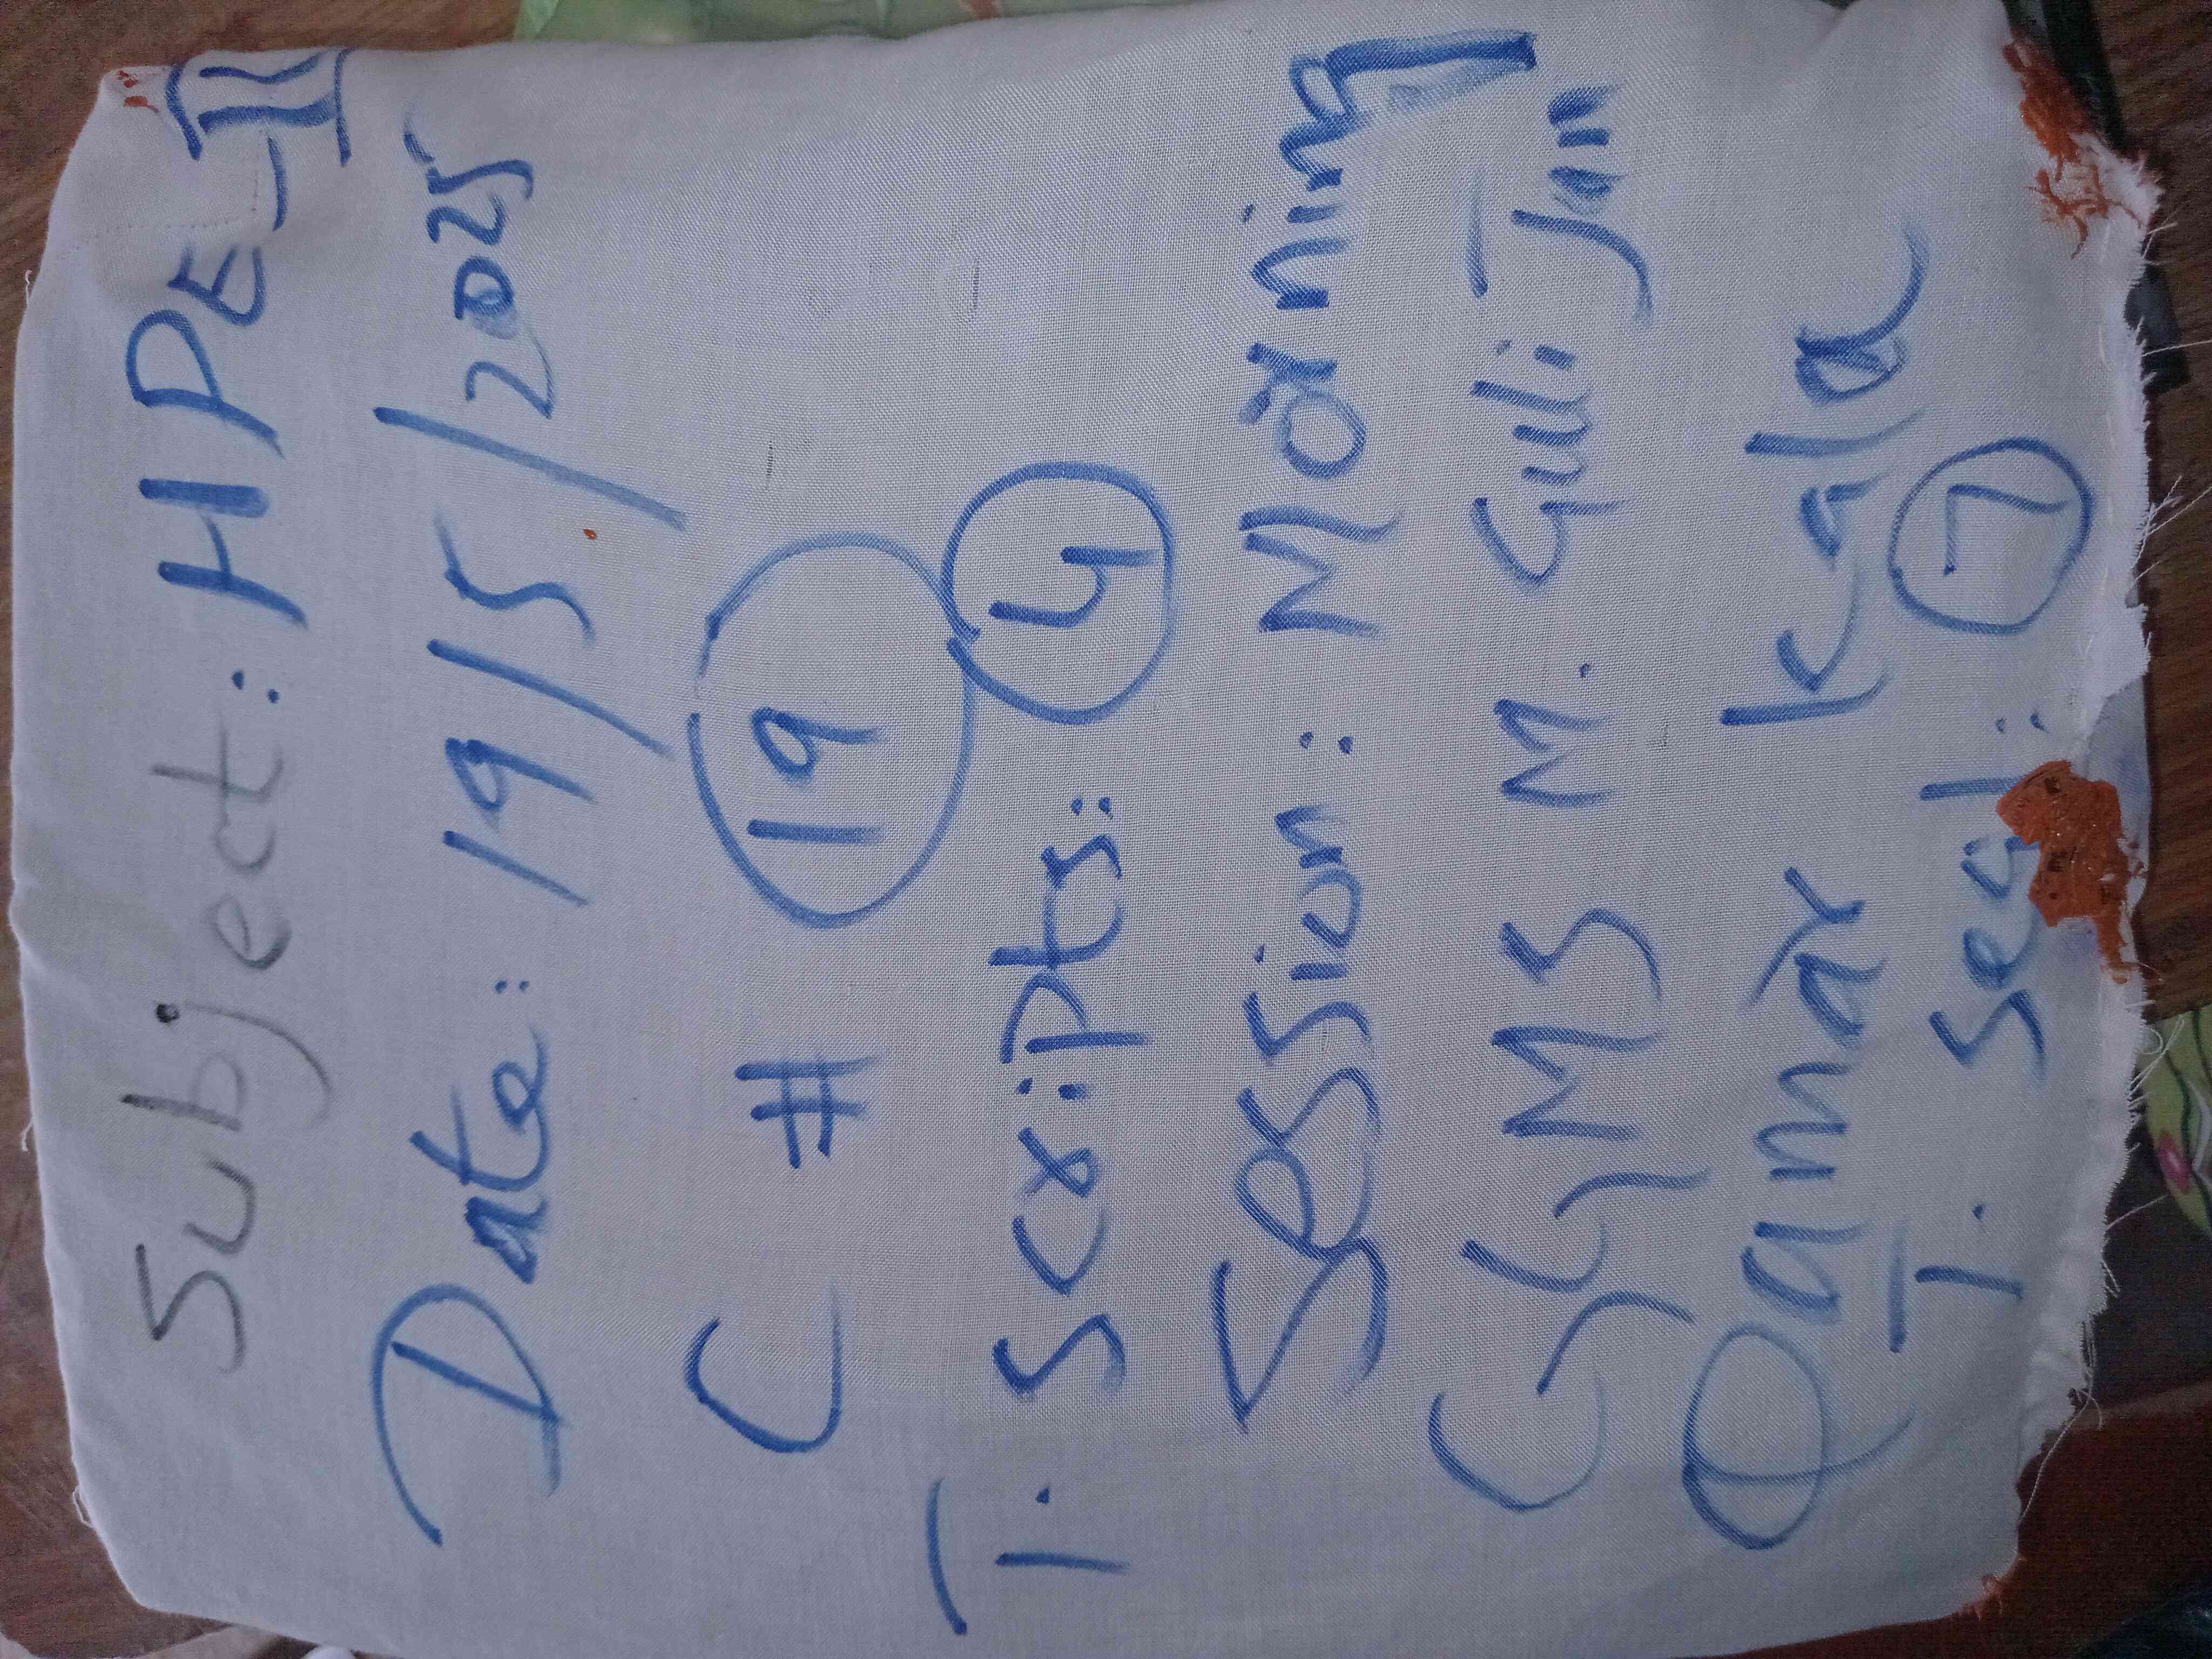 Subject: HPE-II
Date: 19/5/2025
C # 19
T. Scripts: 4
Session: Morning
GHMS M. Guli Jan
Qamar Kala
T. Seal: 7